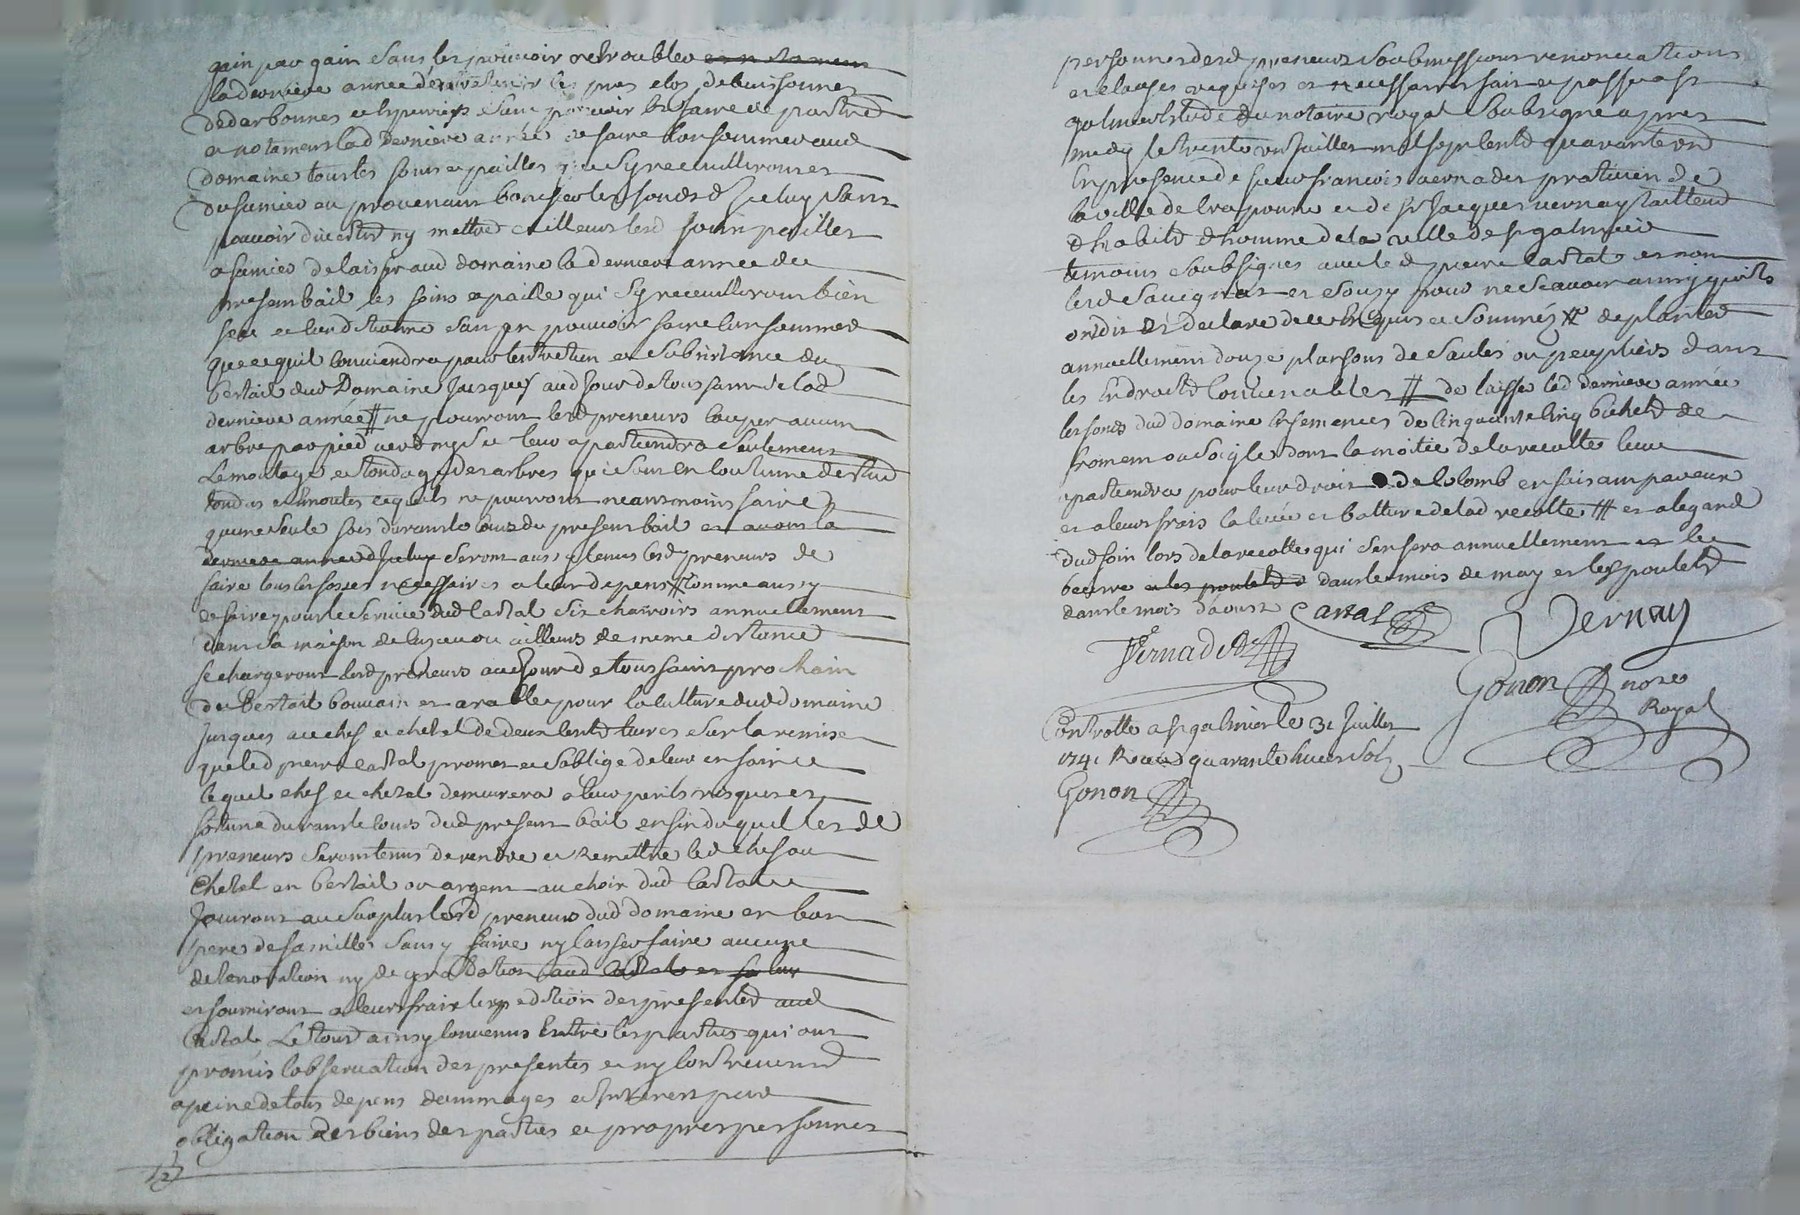 gain par gain sans les pouvoir retroubler
la derniere année les pres clos de buissonner
sans pouvoir
a notament lad derniere année faire consommer aud
domaine tous les foins et pailles qui sy recuilliront et
du fumier en provenant les fonds d Iceluy sans
pouvoir divertir ny mettre ailleurs lesd foin pailles
a fumier delaisser aud domaine la derniere année du
present bail les foins et paille qui sy receuilliront bien
sans en pouvoir faire consommer
que ce quil conviendra pour lentretien et subsistance du
bestail dud Domaine Jusques aud Jour de toussaint de lad
derniere année # ne pourront lesd preneurs couper aucun
arbre par pied verd ny sec leur apartiendra seulement
Lemontage et tondage des arbres qui sont en coutume destre
tondus et emontes ce quils ne pourront neantmoins faire
qune seule fois durant le cours du present bail et avant la
derniere année d Iceluy seront aussy tenus lesd preneurs de
faire tous les fossés necessaires a leur depens # comme aussy
de faire pour le service dud Cartal six charrois annuellement
dans sa maison de ou ailleurs de meme distance
se chargeront lesd preneurs aud Jour de toussaint prochain
du bestail bouvain et arable pour la culture dud domaine
Jusques au chef et chetel de deux cents livres sur la remise
que led pierre Cartal promet et soblige de leur en faire
lequel chef et chetel demeurera a leur perils risques et
fortune durant le cours dud present bail en fin duquel lesd
preneurs seront tenus de rendre et remettre led chef ou
Chetel en bestail ou argent au choix dud Cartal
Jouiront au surplus lesd preneurs dud domaine en bon
peres de familles sans y faire ny laisser faire aucune
detenoration ny degradation aud Cartal et
et fourniront a leurs frais lexpedition des presentes aud
Cartal Le tout ainsy convenus Entre les parties qui ont
promis lobservation des presentes et ny contrevenir
a peine de tous depens dommages et Interest par
obligation des biens des parties et propres personnes
personnes desd preneurs soubmissions renonciations
et clauses requises et necessaires fait et passé a st
galmier etude du notaire royal soubsigné apres
midy le trente un juillet mil sept cents quarante un
En presence de sieur francois vernades praticien de
la ville de et de sr Jacques vernay tailleur
d habits d homme de la ville de st galmier
temoins soubsignes avec led pierre Cartal et non
lesd Savignat et pour ne scavoir ainsy quils
ont dit et declaré de ce enquis et sommés # de planter
annuellement douze plansons de saules ou peupliers dans
les Endroits Convenables # de laisse lad derniere année
les fonds dud domaine ensemences de cinquante cinq bichets de
froment ou soigle dont la moitié de la recolte leur
apartiendra pour leur droit de colomb en faisant paveux
et a leurs frais la levée et batture de lad recolte # et a legard
dud foin lors de la recolte qui sen fera annuellement et le
beurre et les poulets dans le mois de may et les poulets
dans le mois daoust Cartal
Vernay
Vernades
Gonon nore
Royal
Controllé a st galmier le 31 Juillet
1741 Receu quarante huit sols
Gonon